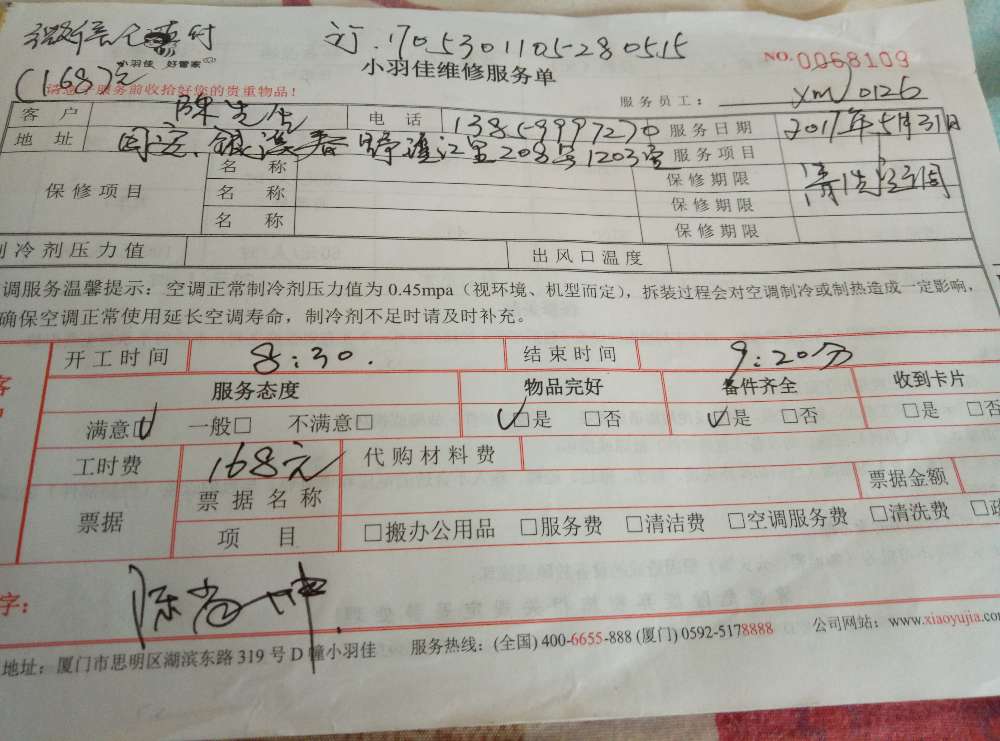 微信已支付
订.170530110528 0515
小羽佳 好管家
(168)元
小羽佳维修服务单
NO.0068109
请您于服务前收拾好您的贵重物品!
服务员工: xm0126
客 户 陈先生 电 话 服务日期 2017年5月31日
地 址 208号1203室 服务项目 清洗空调
保修项目 名 称 保修期限
名 称 保修期限
名 称 保修期限
制冷剂压力值 出风口温度
调服务温馨提示:空调正常制冷剂压力值为 0.45mpa(视环境、机型而定),拆装过程会对空调制冷或制热造成一定影响,
确保空调正常使用延长空调寿命,制冷剂不足时请及时补充。
开工时间 8:30. 结束时间 9:20分
服务态度 物品完好 备件齐全 收到卡片
满意□ 一般□ 不满意□ □是 □否 □是 □否 □是 □否
工时费 168元 代购材料费
票据 票据名称 票据金额
项 目 □搬办公用品 □服务费 □清洁费 □空调服务费 □清洗费
字:
地址:厦门市思明区湖滨东路 319 号 D 幢小羽佳 服务热线:(全国) 400-6655-888 (厦门) 0592-5178888 公司网站:www.xiaoyujia.com